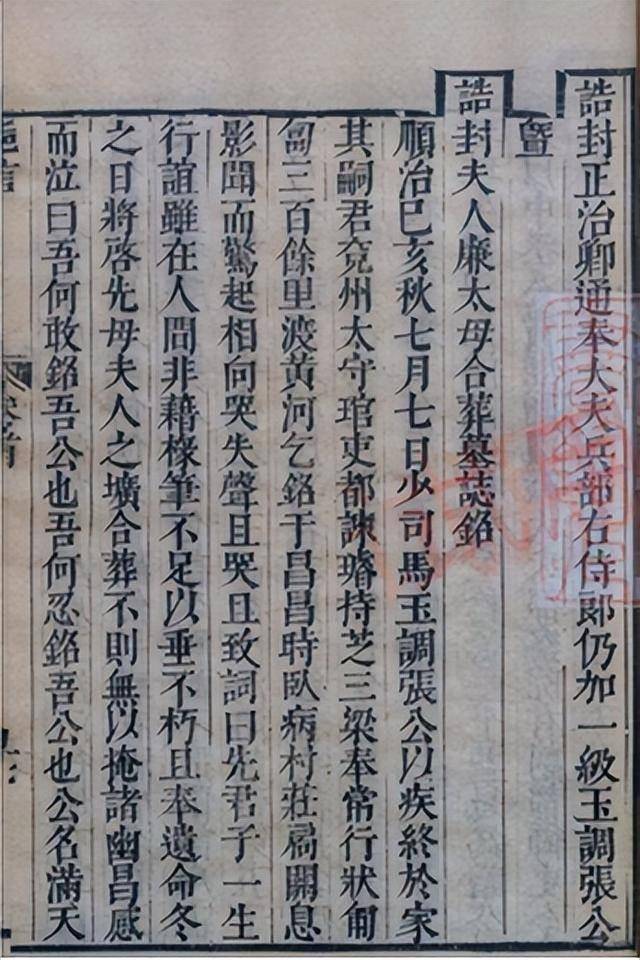 誥封正治卿通奉大夫兵部右侍郎仍加一級玉調張公
暨
誥封夫人廉太母合葬墓誌銘
順治己亥秋七月七日少司馬玉調張公以疾終於家
其嗣君兗州太守琯吏都諫璿持芝三梁奉常行狀匍
匐三百餘里渡黃河乞銘于昌昌時臥病村莊扃關息
影聞而驚起相向哭失聲且哭且致詞曰先君子一生
行誼雖在人間非藉椽筆不足以垂不朽且奉遺命冬
之日將啓先母夫人之壙合葬不則無以掩諸幽昌感
而泣曰吾何敢銘吾公也吾何忍銘吾公也公名滿天